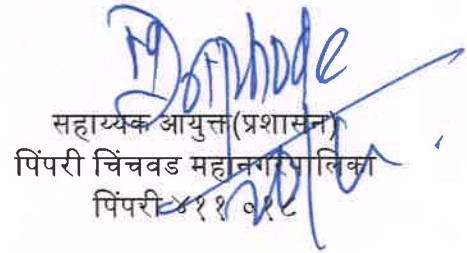 सहाय्यक आयुक्त(प्रशासन)
पिंपरी चिंचवड महानगरपालिका
पिंपरी ४११ ०१८